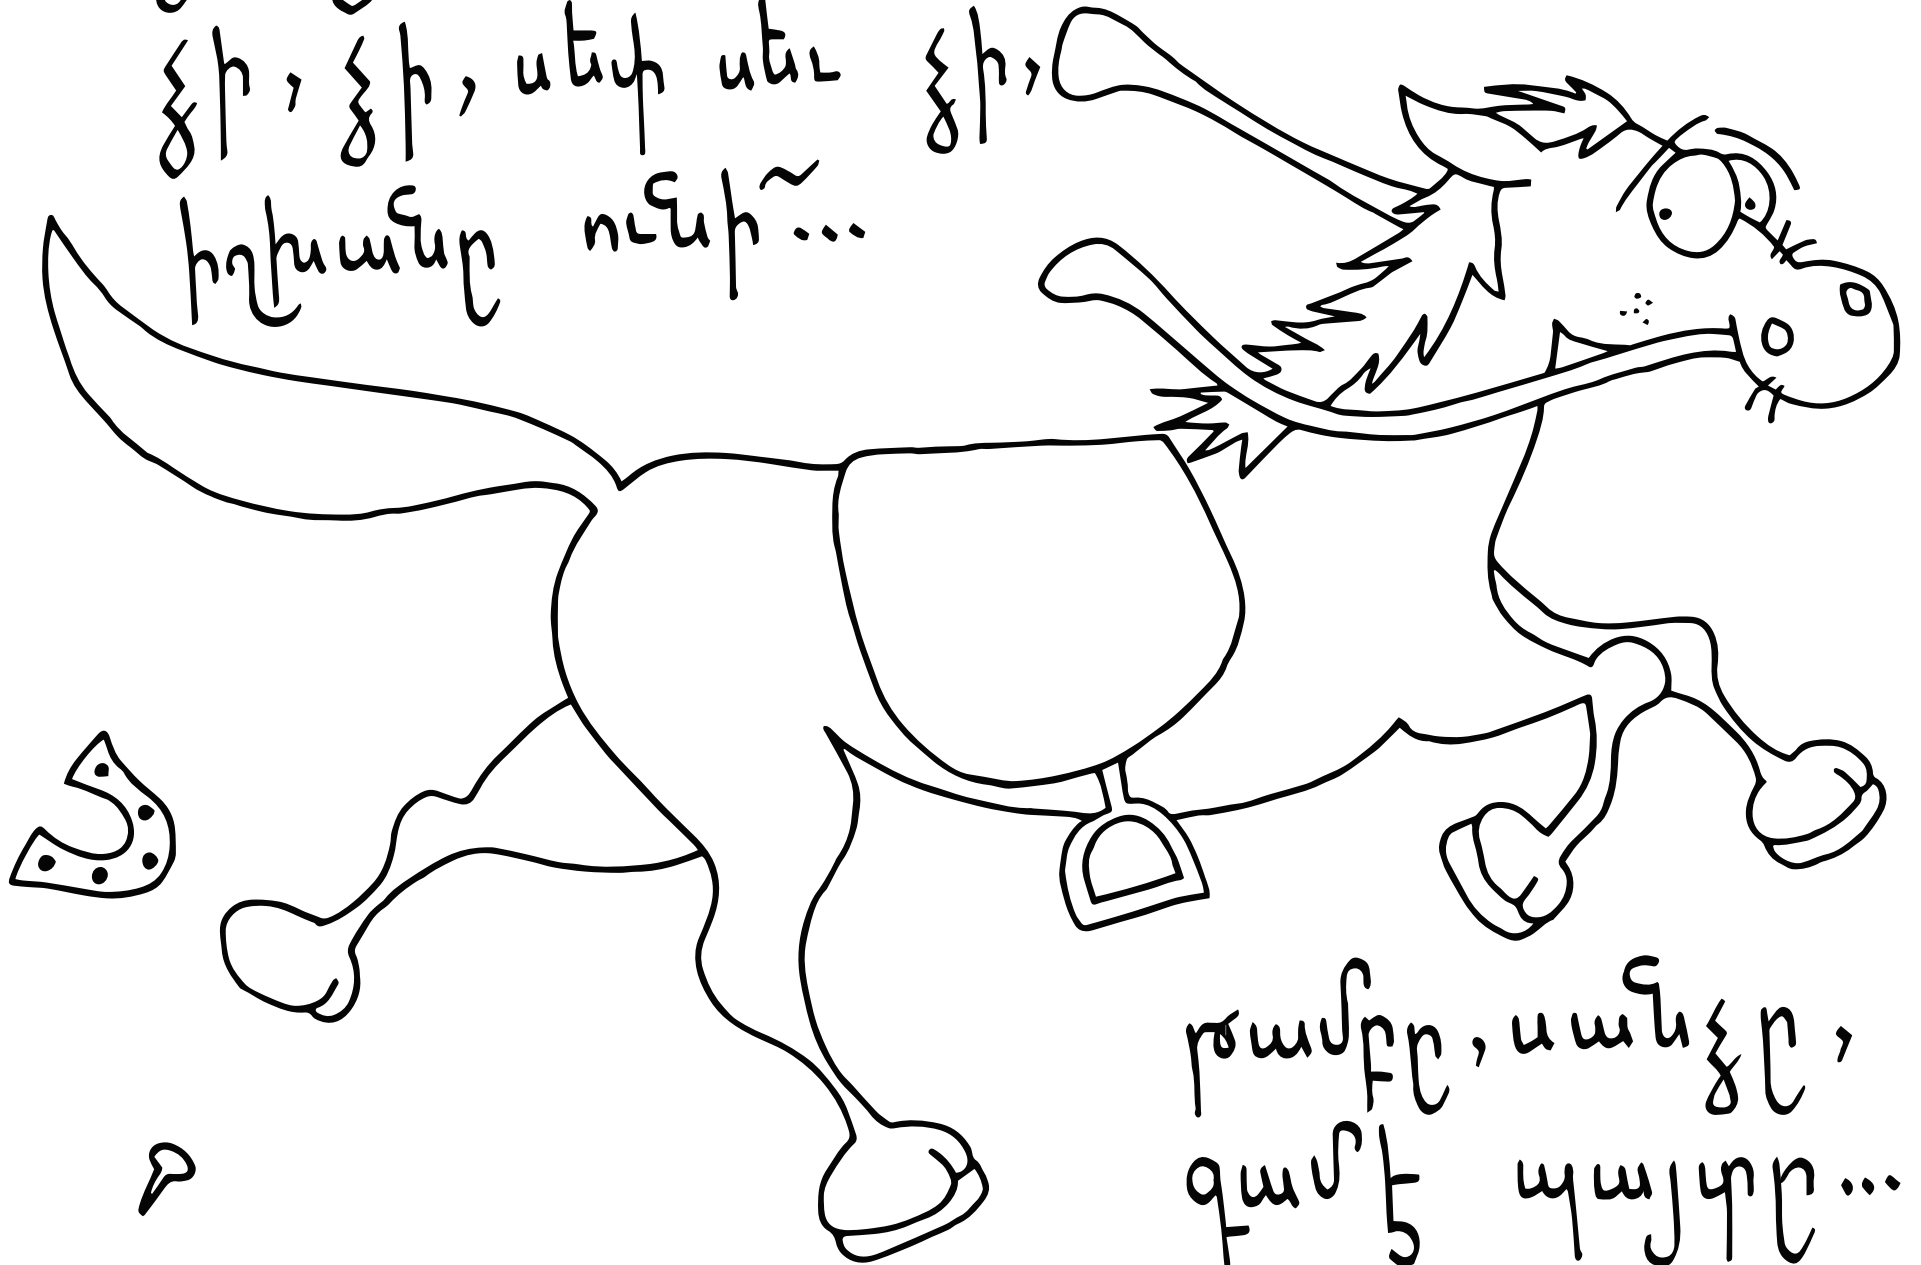 ձի, ձի, սեփ սեւ ձի,
իշխանը ունի՜...
թամբը, սանձը,
գամէ պայտը...